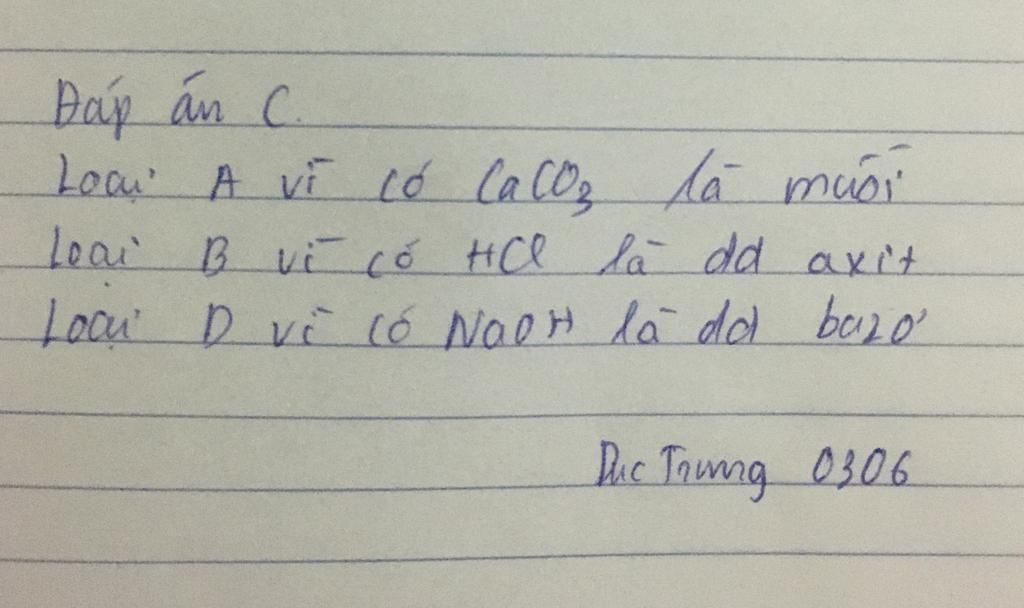 Đáp án C.
Loại A vì có CaCO3 là muối
Loại B vì có HCl là dd axit
Loại D vì có NaOH là dd bazơ
Duc Trung 0306